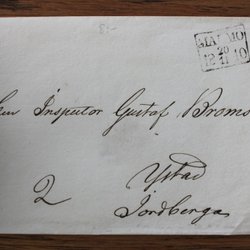 8:-
MALMÖ
20
12 11 10
Inspector Gustaf Broms
Ystad
2
Jordberga